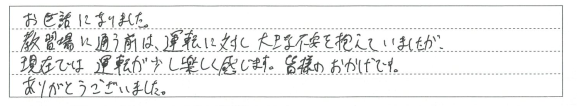 お世話になりました。
教習場に通う前は、運転に対し大きな不安を抱えていましたが、
現在では運転が少し楽しく感じます。皆様のおかげです。
ありがとうございました。